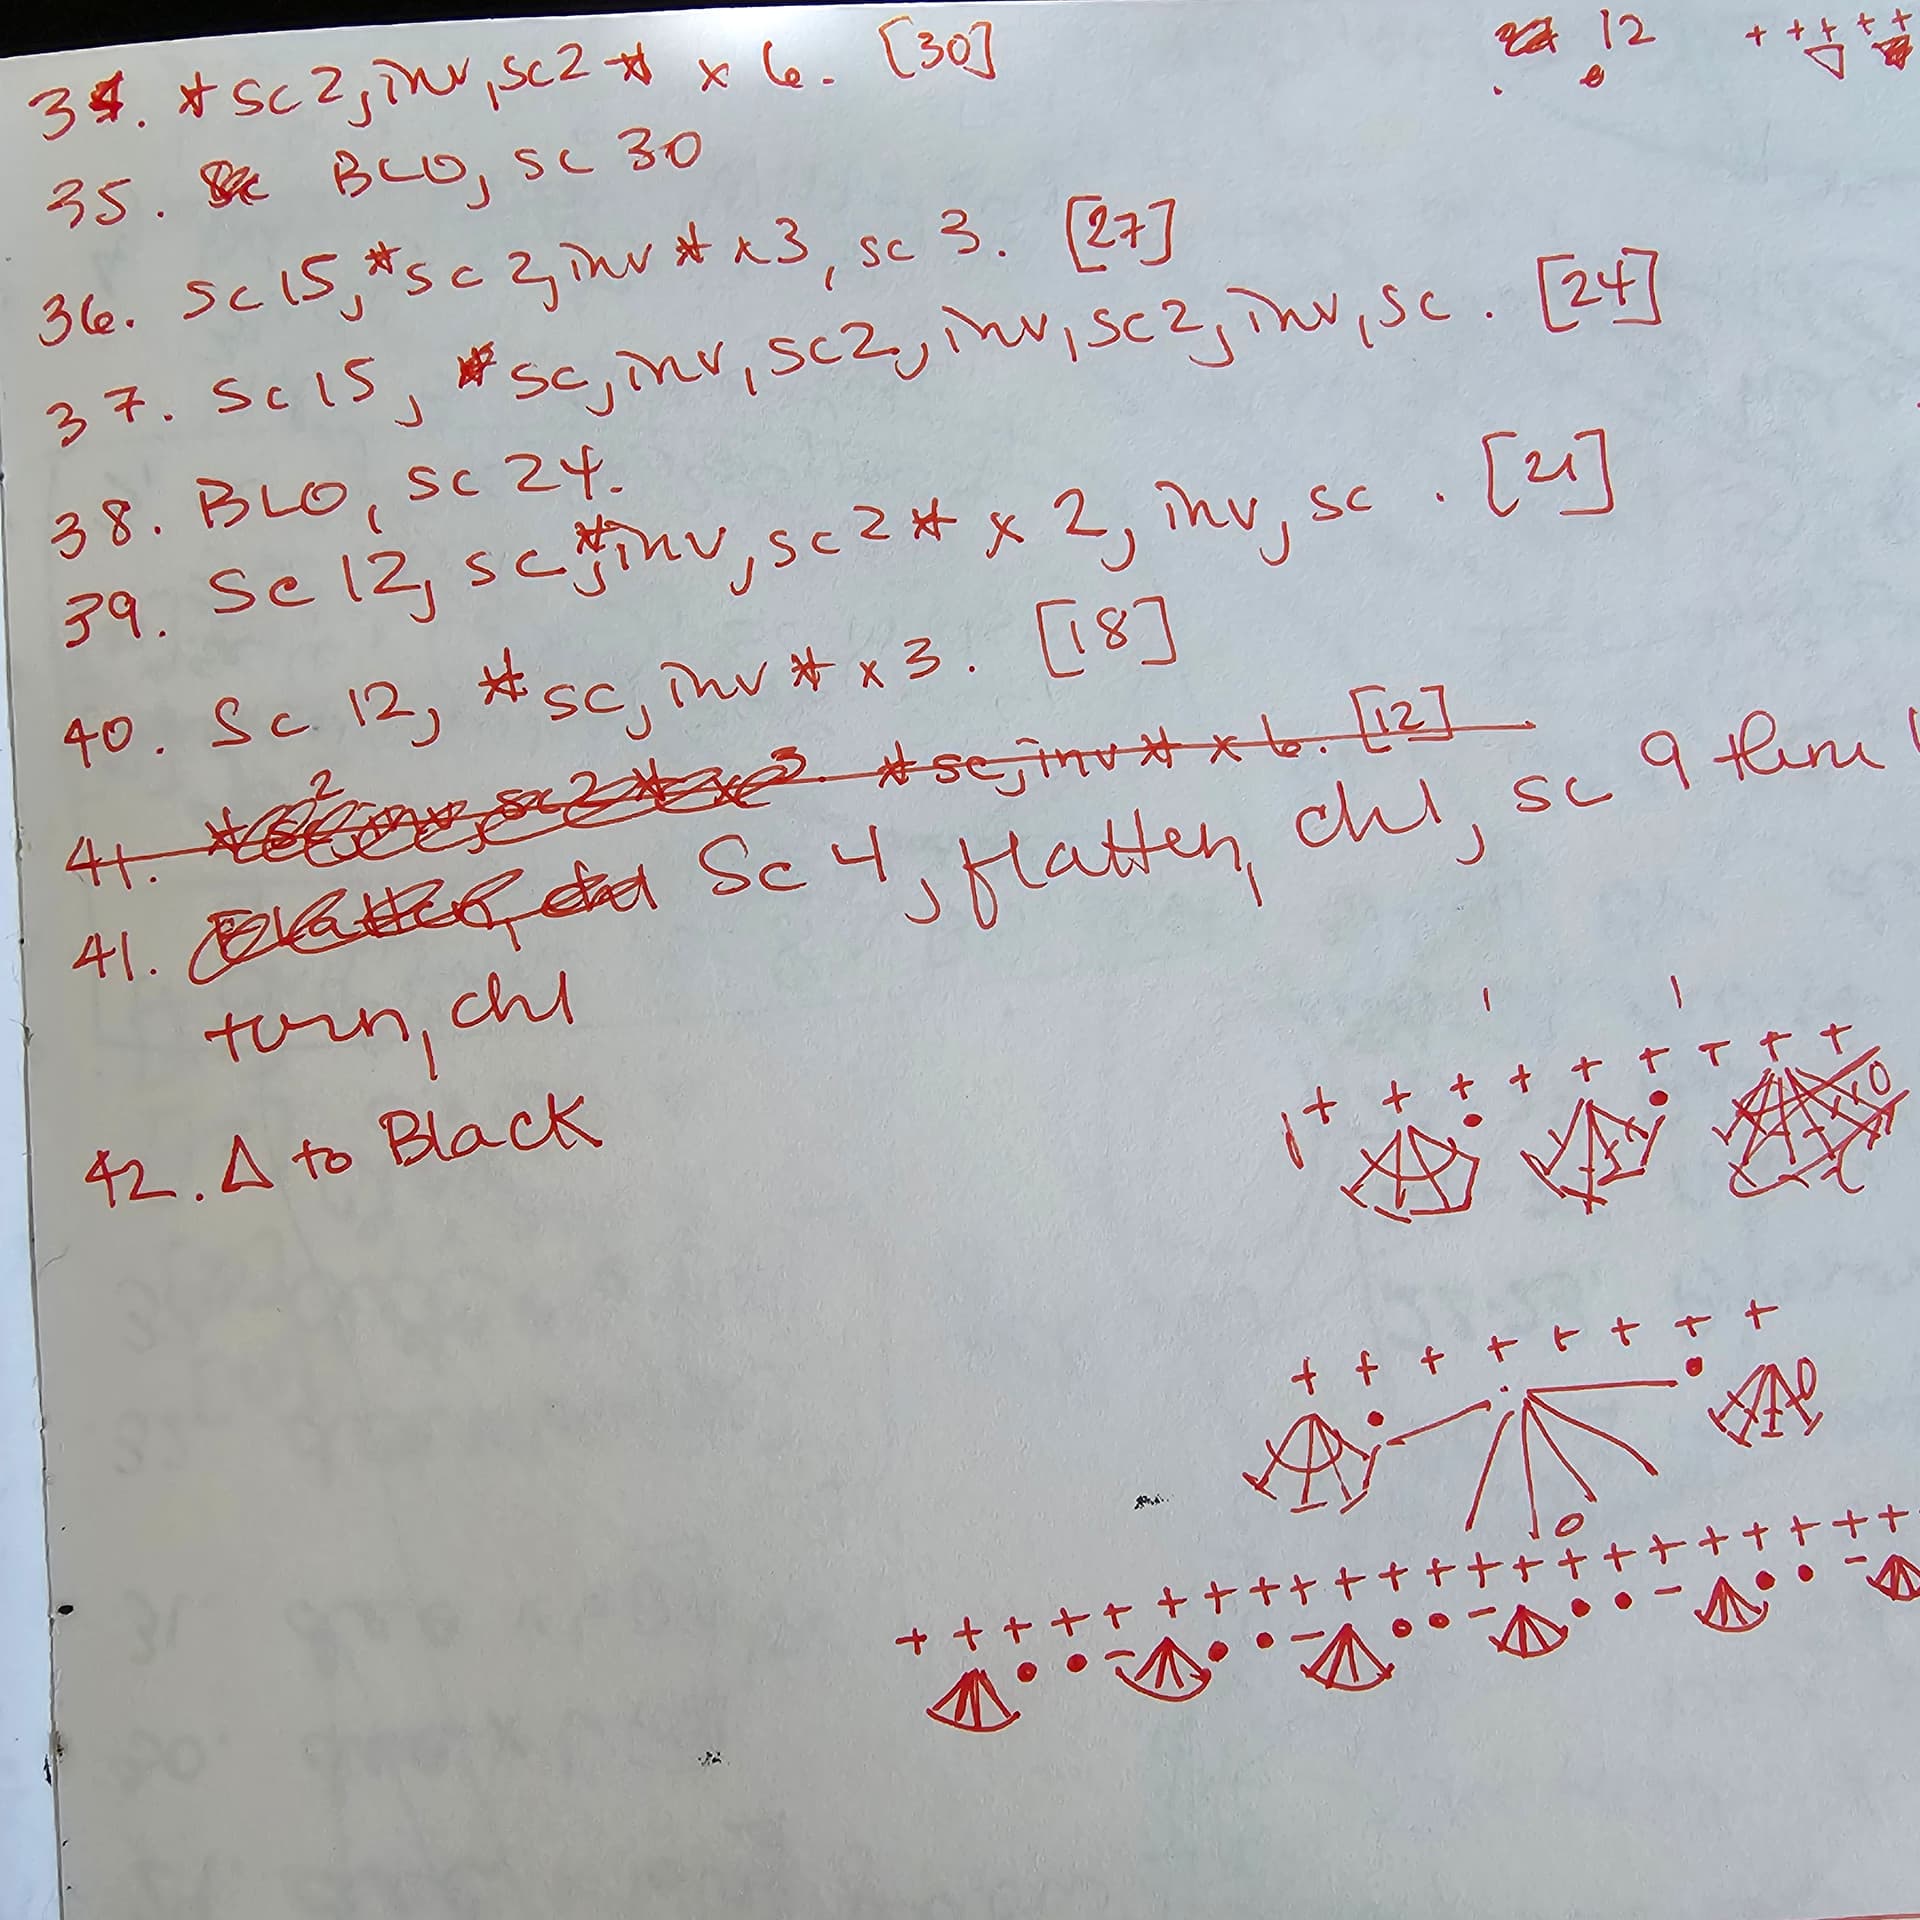 34. *sc2, inv, sc2* x 6. [30]
12
35. BLO, sc 30
36. sc 15, *sc 2, inv* x3, sc 3. [27]
37. Sc 15, sc, inv, sc2, inv, sc2, inv, sc. [24]
38. BLO, sc 24.
39. Sc 12, sc, *inv, sc2* x 2, inv, sc. [21]
40. Sc 12, *sc, inv* x 3. [18]
41. *sc2 inv, sc2* x 3. *sc, inv* x 6. [12]
41. Flatten, ch1 Sc 4, flatten, ch1, sc 9 thru
turn, ch1
42. Δ to Black